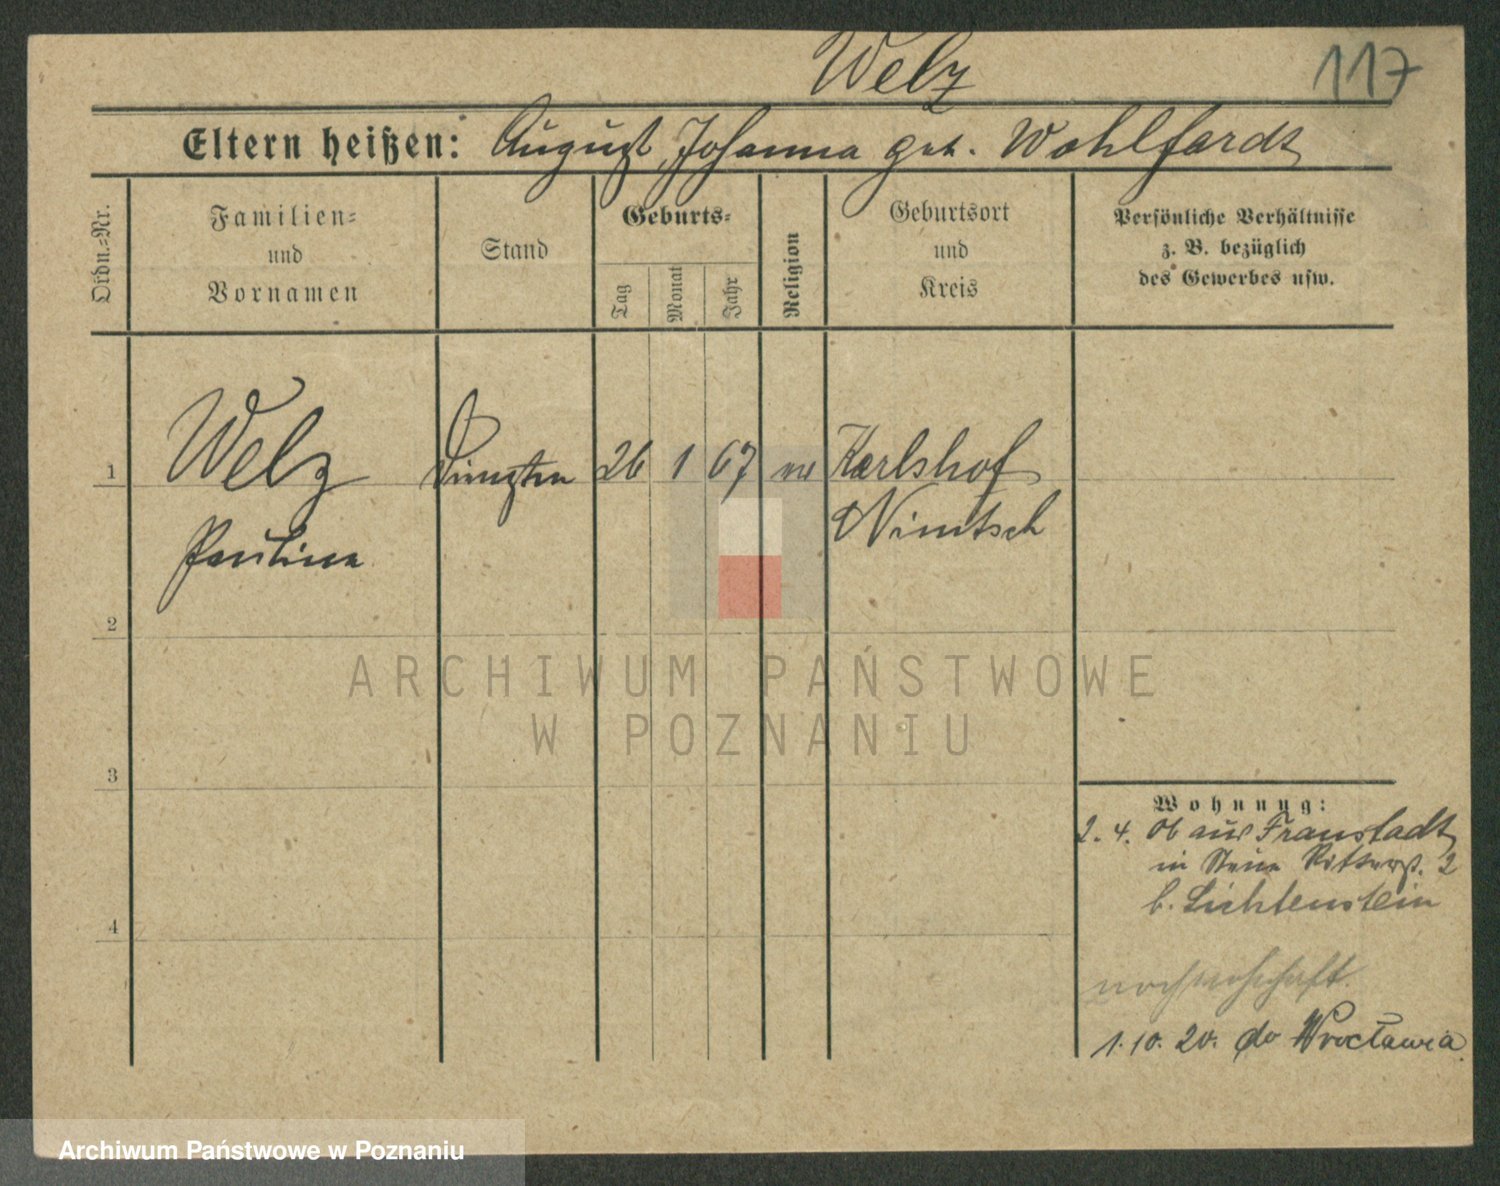 Welz
117
Eltern heißen: August, Johanna geb. Wohlfardt
Ordn.=Nr.
Familien=
und
Vornamen
Stand
Geburts=
Tag
Monat
Jahr
Religion
Geburtsort
und
Kreis
Persönliche Verhältnisse
z. B. bezüglich
des Gewerbes usw.
1
Welz
Paulina
26 1 67
Karlshof
Nimtsch
2
3
4
Wohnung:
2. 4. 06 aus Fraustadt
in 2
b. Lichtenstein
1. 10. 20. do Wrocławia
ARCHIWUM PAŃSTWOWE
W POZNANIU
Archiwum Państwowe w Poznaniu